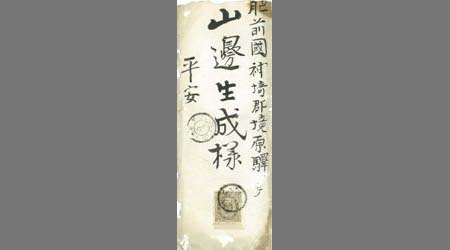 肥前國神埼郡境原驛
山邊生成様
平安